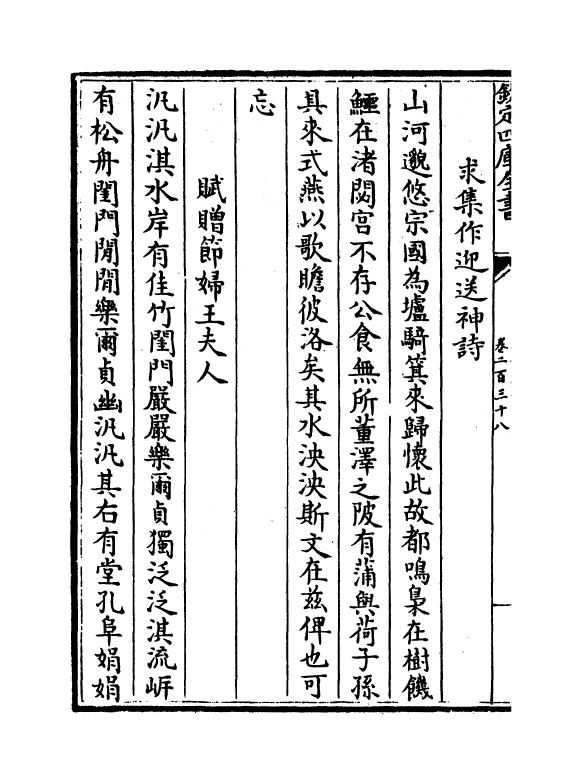 欽定四庫全書
卷二百三十八
求集作迎送神詩
山河邈悠宗國為墟騎箕來歸懷此故都鳴梟在樹饑
鱷在渚閟宫不存公食無所董澤之陂有蒲與荷子孫
具來式燕以歌瞻彼洛矣其水泱泱斯文在兹俾也可
忘
賦贈節婦王夫人
汎汎淇水岸有佳竹閨門嚴嚴樂爾貞獨泛泛淇流㟁
有松舟閨門閒閒樂爾貞幽汎汎其右有堂孔阜娟娟